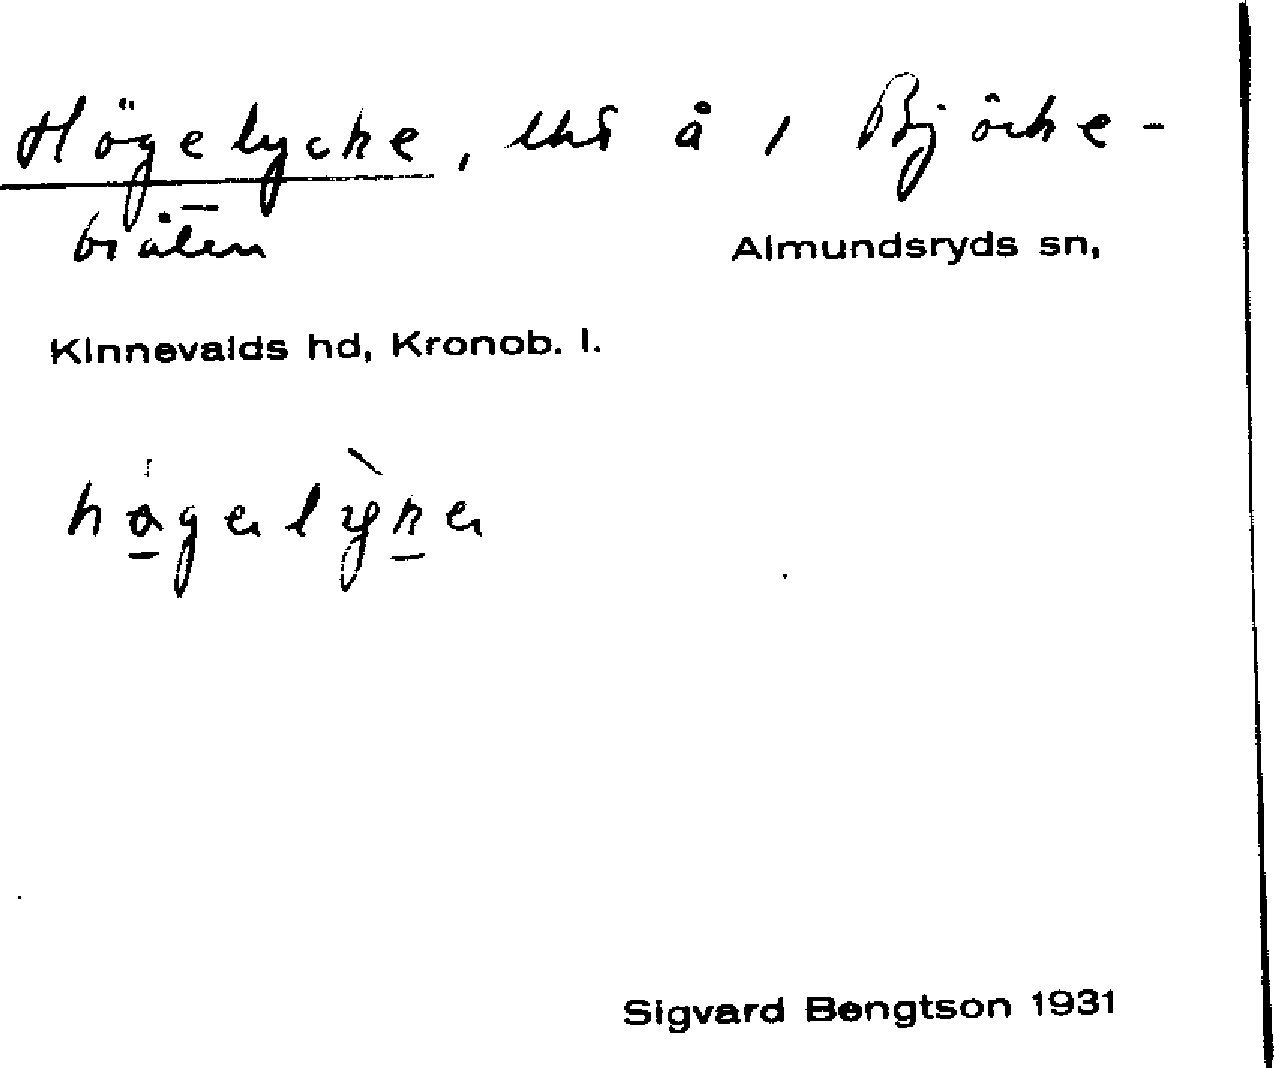 Högelycke, lhs å 1 Björke-
bråten
Almundsryds sn,
Kinnevalds hd, Kronob. l.
Sigvard Bengtson 1931